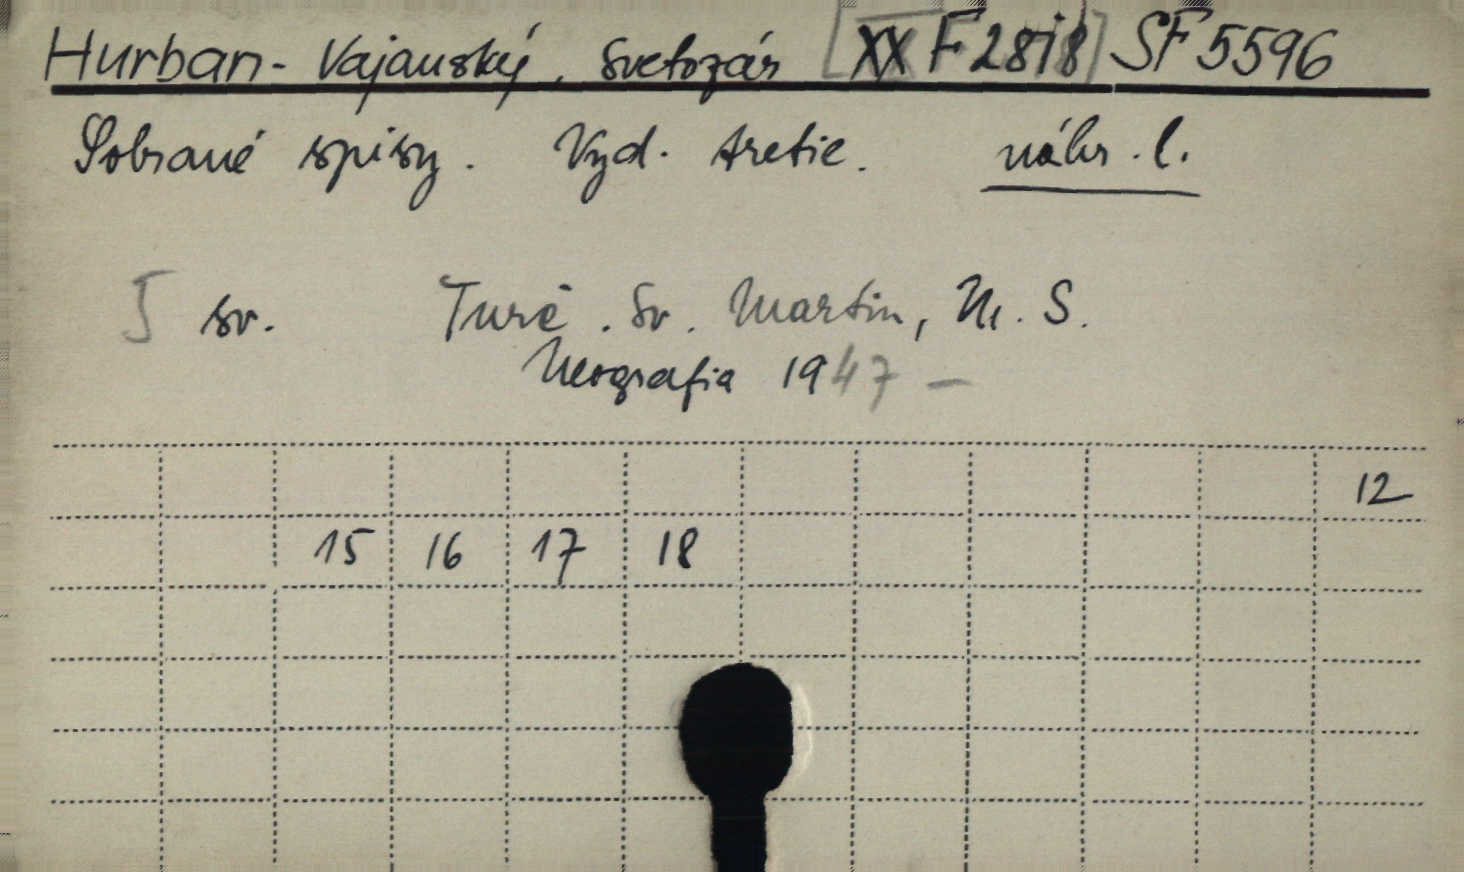 Hurban-Vajanský, Svetozár [XX F 2818] SF 5596
Sobrané spisy. Vyd. tretie. náhr. l.
5 sv. Turč. Sv. Martin, N. S.
Neografia 1947 –
12
15 16 17 18